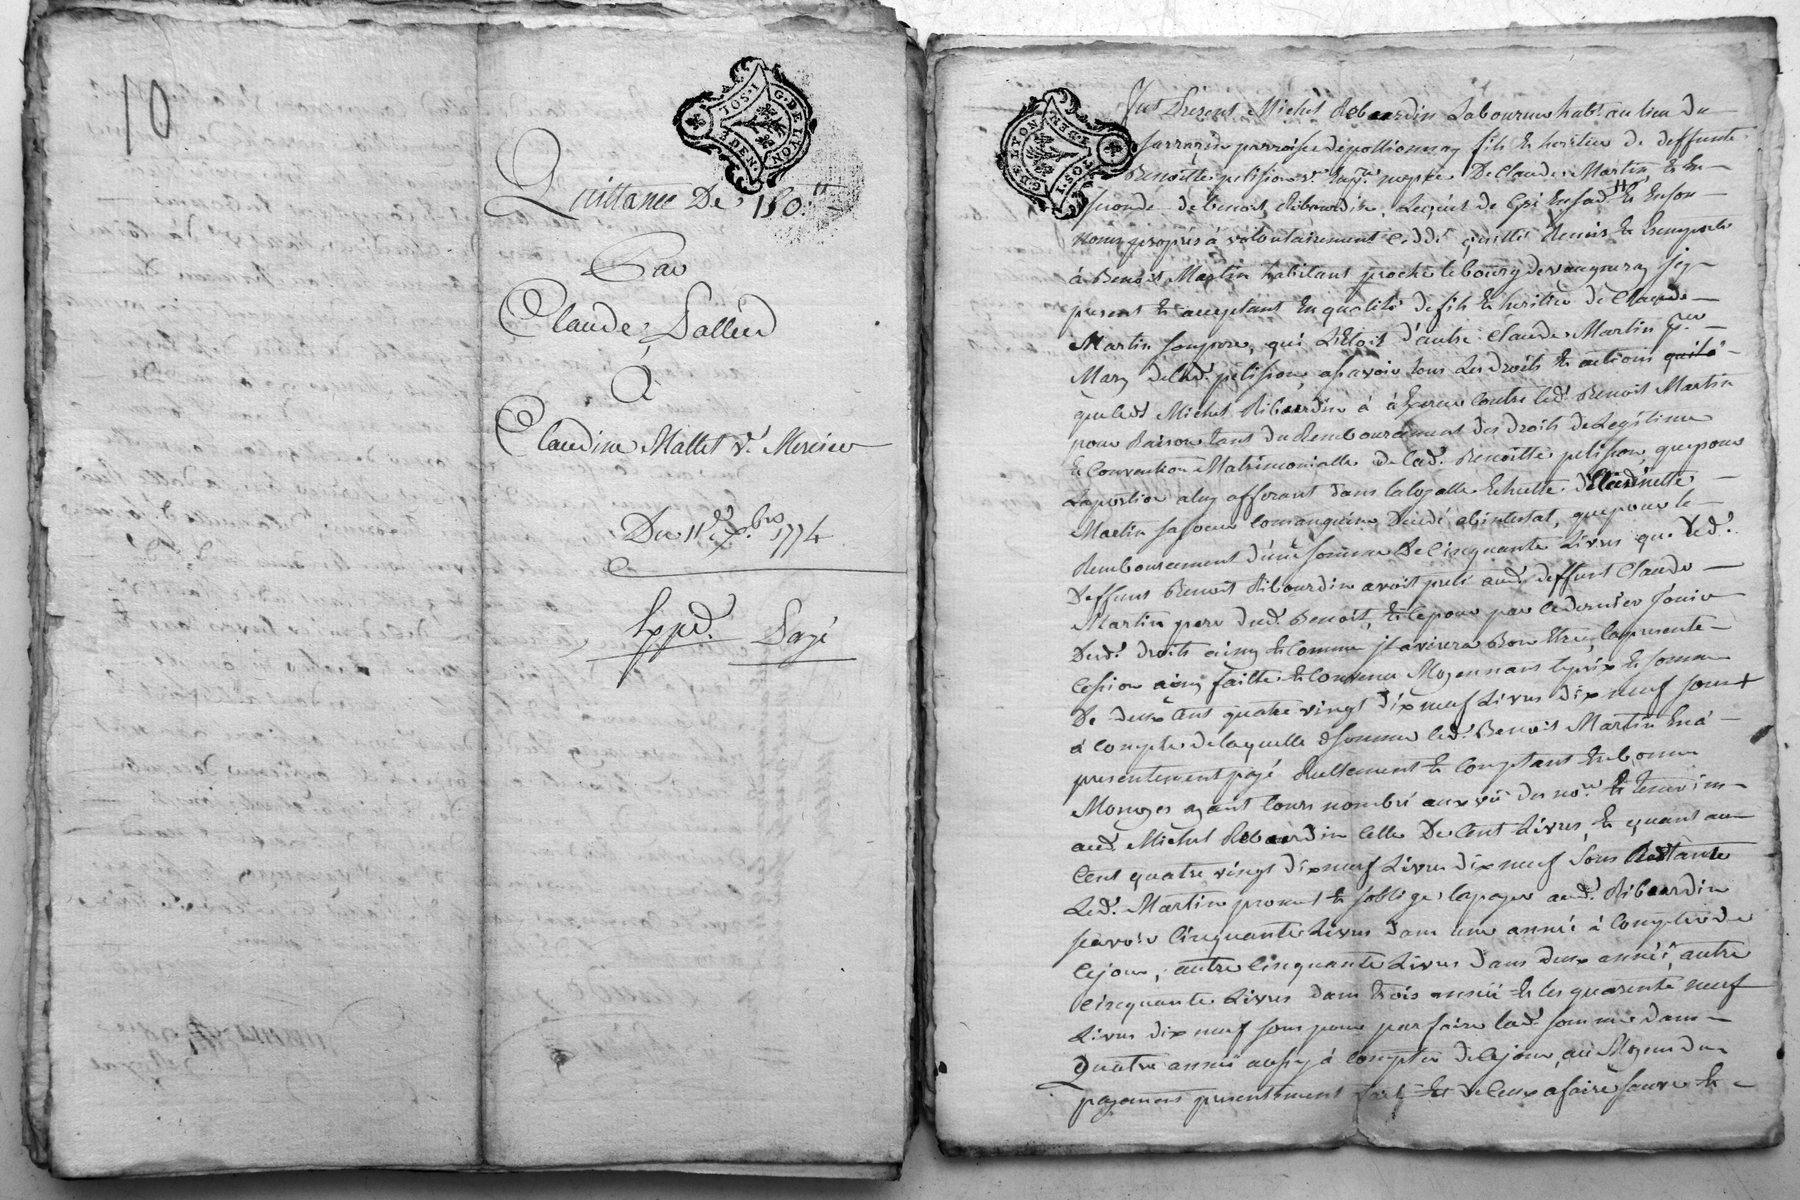 10
1. SOL
G. DE LYON
8 DEN.
Quittance De 150.tt
Par
Claude Pallud
à
Claudine Mallet v.e Mercier
Du 11e xbre 1774
Expd. Payé
G. DE LYON
8 DEN.
1. SOL
fut Present Michel Ribourdin Laboureur habt. au lieu du
Sarrazin parroisse de pollionnay fils & heritier de deffunte
Benoitte pelission De Claude Martin, & En
seconde de benoit Ribourdin, Lequel de Gré En lad. & En son
nom propre à volontairement Ceddé quitté Remis &
à Benoit Martin habitant proche le bourg de vaugneray icy
present & acceptant En qualité de fils & heritier de Claude
Martin son pere, qui L'Etoit d'autre Claude Martin
Mary de lad. pelission, asavoir tous Les droits & actions
que led. Michel Ribourdin à à Exercer Contre led. Benoit Martin
pour Raison tant du Remboursement des droits de Legitime
& Convention Matrimonialle de lad. Benoitte pelission, que pour
La portion a luy afferant dans
Martin sa soeur Consanguine Décédé abintestat, que pour le
Remboursement d'une somme De Cinquante Livres que led.
Deffunt Benoit Ribourdin avoit preté aud. deffunt Claude
Martin pere dud. Benoit, & pour par Ce dernier Jouir
Desd. droits ainsy & Comme il avisera Bon Etre, la presente
Cession ainsy faitte & Convenue Moyennant le prix & somme
De deux Cent quatre vingt dix neuf Livres dix neuf sous
à Compte de laquelle somme led. Benoit Martin En à
presentement payé Reellement & Comptant En bonne
Monoyes ayant Cours nombré aux vüe des nores. &
aud. Michel Ribourdin Celle De Cent Livres, & quant aux
Cent quatre vingt dix neuf Livres dix neuf sous Restante
Led. Martin promet & s'oblige la payer aud. Ribourdin
sçavoir Cinquante Livres dans une année à Compter de
Ce jour, autre Cinquante Livres dans deux année, autre
Cinquante Livres dans trois année & les quarente neuf
Livres dix neuf sous pour parfaire lad. somme dans
Quatre année aussy à Compter de Ce jour, au Moyen du
payement presentement fait & de Ceux à faire sauve &